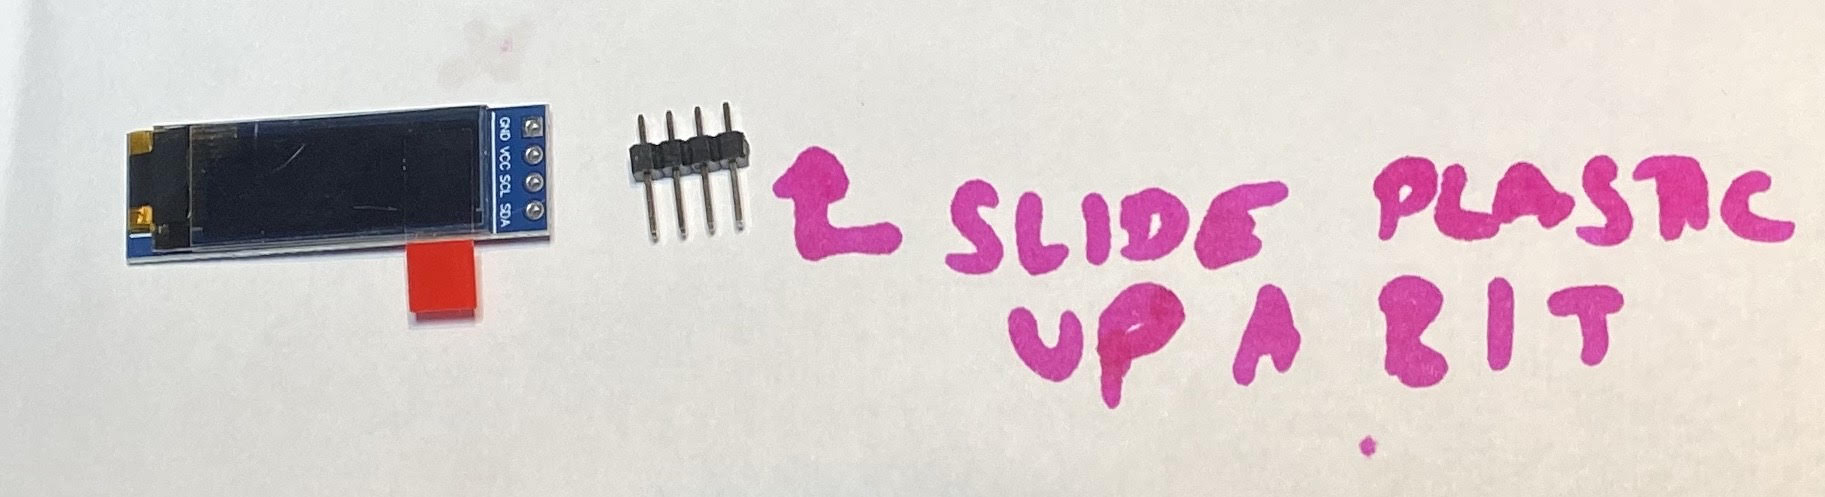 GND VCC SCL SDA
SLIDE PLASTIC
UP A BIT